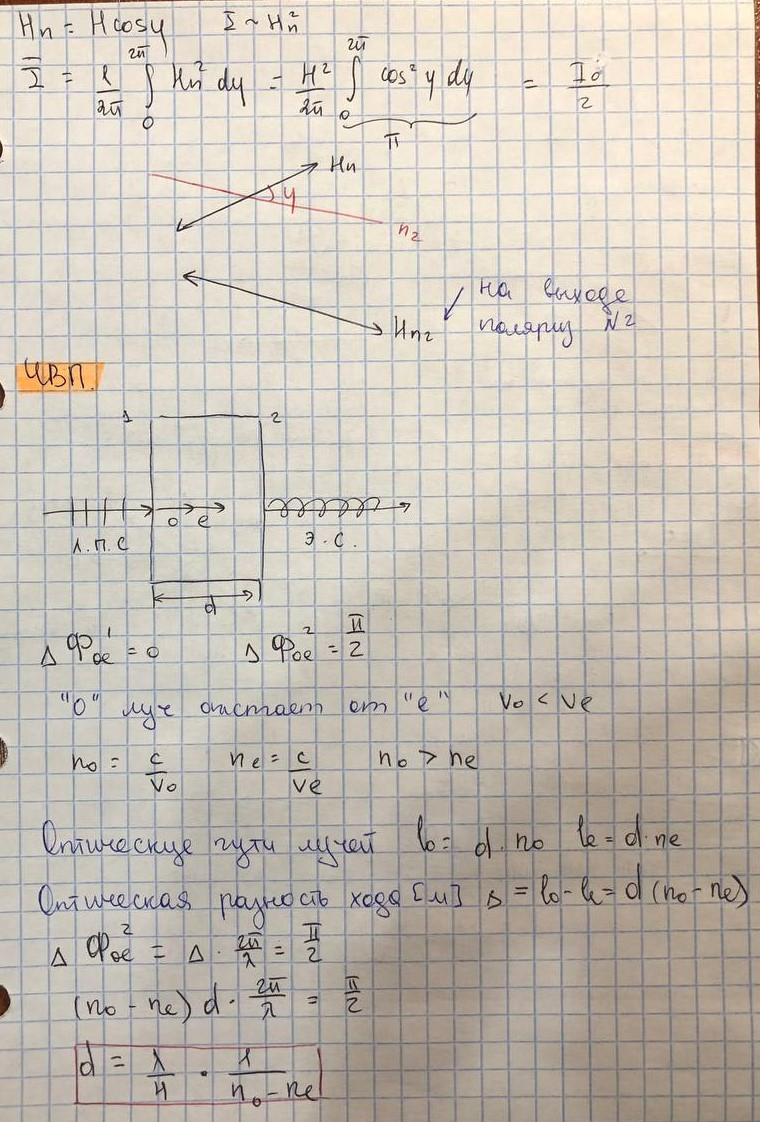 Hп = H cosγ    I ~ Hп²
Ī = 1/2π ∫₀^2π Hп² dγ = H²/2π ∫₀^2π cos²γ dγ = I₀/2
π
Hп
γ
п₂
Hп₂
на выходе
поляриз №2
ЧВП.
1    2
о    е
л.п.с    э.с.
d
ΔФoe¹ = 0    ΔФoe² = π/2
"о" луч отстает от "е"    Vo < Ve
no = c/Vo    ne = c/Ve    no > ne
Оптические пути лучей    lo = d · no    le = d · ne
Оптическая разность хода [м] Δ = lo - le = d (no - ne)
ΔФoe² = Δ · 2π/λ = π/2
(no - ne) d · 2π/λ = π/2
d = λ/4 · 1/(no - ne)